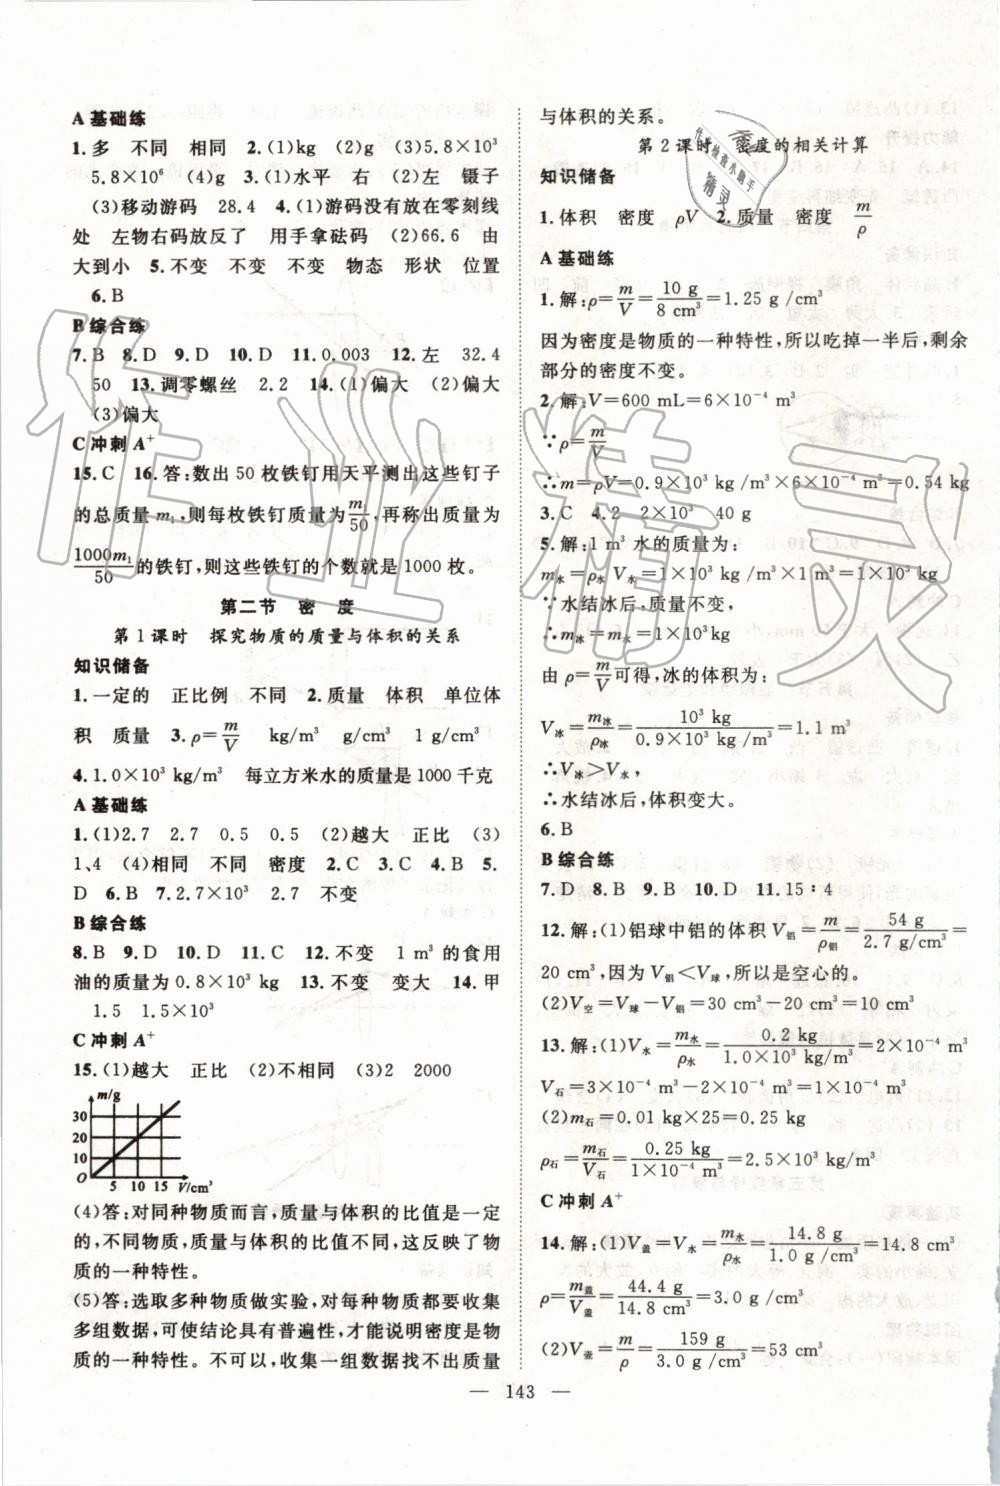 A 基础练
1. 多 不同 相同 2. (1)kg (2)g (3)5.8×10³
5.8×10⁶ (4)g 3. (1)水平 右 (2)左 镊子
(3)移动游码 28.4 4. (1)游码没有放在零刻线
处 左物右码放反了 用手拿砝码 (2)66.6 由
大到小 5. 不变 不变 不变 物态 形状 位置
6. B
B 综合练
7. B 8. D 9. D 10. D 11. 0.003 12. 左 32.4
50 13. 调零螺丝 2.2 14. (1)偏大 (2)偏大
(3)偏大
C 冲刺 A⁺
15. C 16. 答:数出 50 枚铁钉用天平测出这些钉子
的总质量 m₁,则每枚铁钉质量为 m/50,再称出质量为
1000m₁/50 的铁钉,则这些铁钉的个数就是 1000 枚。
第二节 密 度
第 1 课时 探究物质的质量与体积的关系
知识储备
1. 一定的 正比例 不同 2. 质量 体积 单位体
积 质量 3. ρ=m/V kg/m³ g/cm³ 1 g/cm³
4. 1.0×10³ kg/m³ 每立方米水的质量是 1000 千克
A 基础练
1. (1)2.7 2.7 0.5 0.5 (2)越大 正比 (3)
1、4 (4)相同 不同 密度 2. C 3. C 4. B 5.
D 6. B 7. 2.7×10³ 2.7 不变
B 综合练
8. B 9. D 10. D 11. C 12. 不变 1 m³ 的食用
油的质量为 0.8×10³ kg 13. 不变 变大 14. 甲
1.5 1.5×10³
C 冲刺 A⁺
15. (1)越大 正比 (2)不相同 (3)2 2000
m/g
30
20
10
O 5 10 15 V/cm³
(4)答:对同种物质而言,质量与体积的比值是一定
的,不同物质,质量与体积的比值不同,这反映了物
质的一种特性。
(5)答:选取多种物质做实验,对每种物质都要收集
多组数据,可使结论具有普遍性,才能说明密度是物
质的一种特性。不可以,收集一组数据找不出质量
与体积的关系。
第 2 课时 密度的相关计算
知识储备
1. 体积 密度 ρV 2. 质量 密度 m/ρ
A 基础练
1. 解:ρ=m/V=10 g/8 cm³=1.25 g/cm³
因为密度是物质的一种特性,所以吃掉一半后,剩余
部分的密度不变。
2. 解:V=600 mL=6×10⁻⁴ m³
∵ρ=m/V
∴m=ρV=0.9×10³×6×10⁻⁴=0.54 kg
3. C 4. 2 2×10³ 40 g
5. 解:1 m³ 水的质量为:
m水=ρ水 V水=1×10³×1=1×10³ kg
∵水结冰后,质量不变,
∴m冰=m水=1×10³ kg
由 ρ=m/V 可得,冰的体积为:
V冰=m冰/ρ冰=10³ kg/0.9×10³ kg/m³=1.1 m³
∴V冰>V水,
∴水结冰后,体积变大。
6. B
B 综合练
7. D 8. B 9. B 10. D 11. 15∶4
12. 解:(1)铝球中铝的体积 V铝=m/ρ铝=54 g/2.7 g/cm³=
20 cm³,因为 V铝<V球,所以是空心的。
(2)V空=V球-V铝=30 cm³-20 cm³=10 cm³
13. 解:(1)V水=m水/ρ水=0.2 kg/1.0×10³ kg/m³=2×10⁻⁴ m³
V石=3×10⁻⁴ m³-2×10⁻⁴ m³=1×10⁻⁴ m³
(2)m石=0.01 kg×25=0.25 kg
ρ石=m石/V石=0.25 kg/1×10⁻⁴ m³=2.5×10³ kg/m³
C 冲刺 A⁺
14. 解:(1)V盖=V水=m水/ρ水=14.8 g/1.0 g/cm³=14.8 cm³
ρ=m盖/V盖=44.4 g/14.8 cm³=3.0 g/cm³
(2)V壶=m/ρ=159 g/3.0 g/cm³=53 cm³
— 143 —
作业精灵